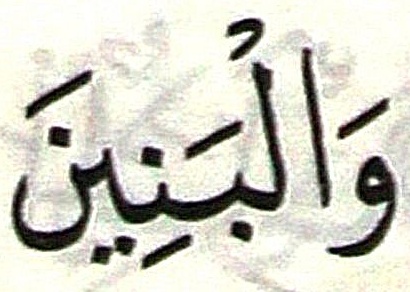 وَالْبَنِينَ